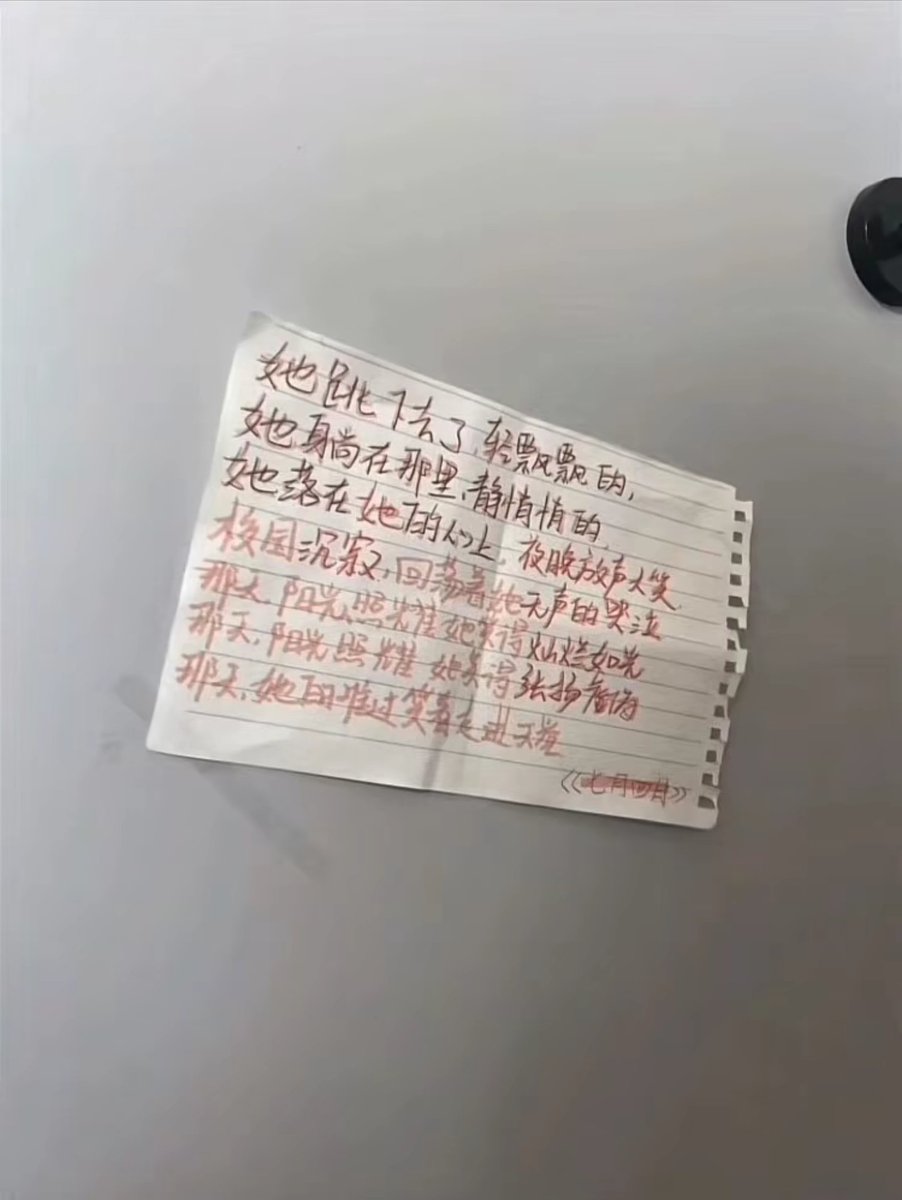 她跳下去了,轻飘飘的,
她身躺在那里,静悄悄的,
她落在她的心上,夜晚放声大笑
校园沉寂,回荡着她无声的哭泣
那天,阳光照耀她笑得灿烂如光
那天,阳光照耀 她笑得张扬虚伪
那天,她的难过笑着走进天堂
《七月四日》